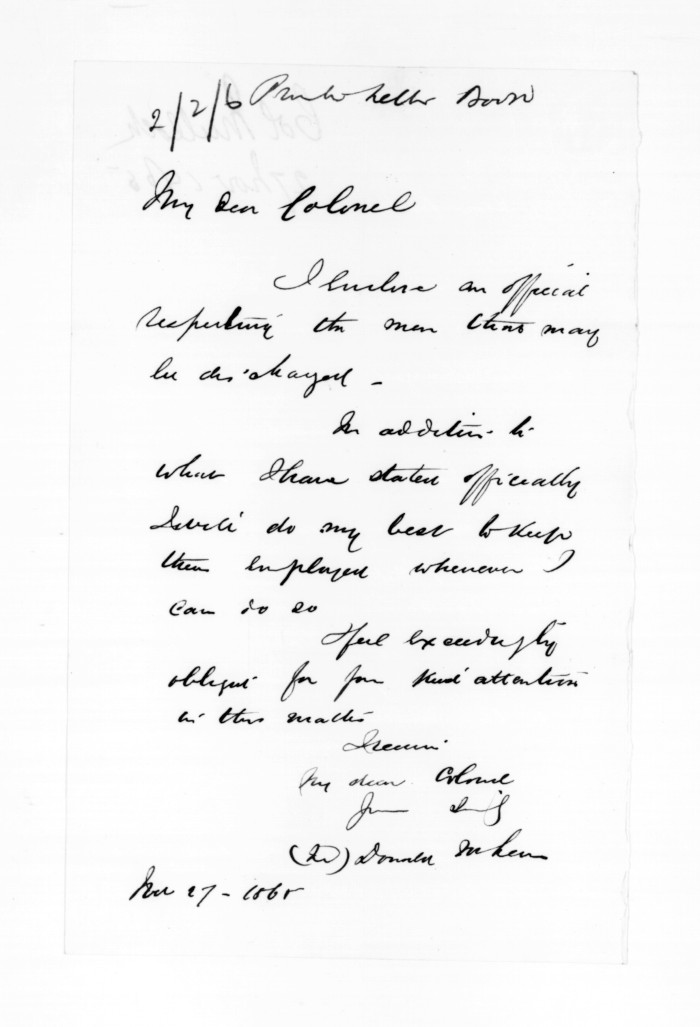 2/2/6 Private Letter Book
My dear Colonel
I enclose an official
respecting the men that may
be discharged -
In addition to
what I have stated officially
I will do my best to keep
them employed whenever I
can do so
I feel exceedingly
obliged for your kind attention
in this matter
I remain
My dear Colonel
Yours
Donald McLean
Nov 27 - 1865